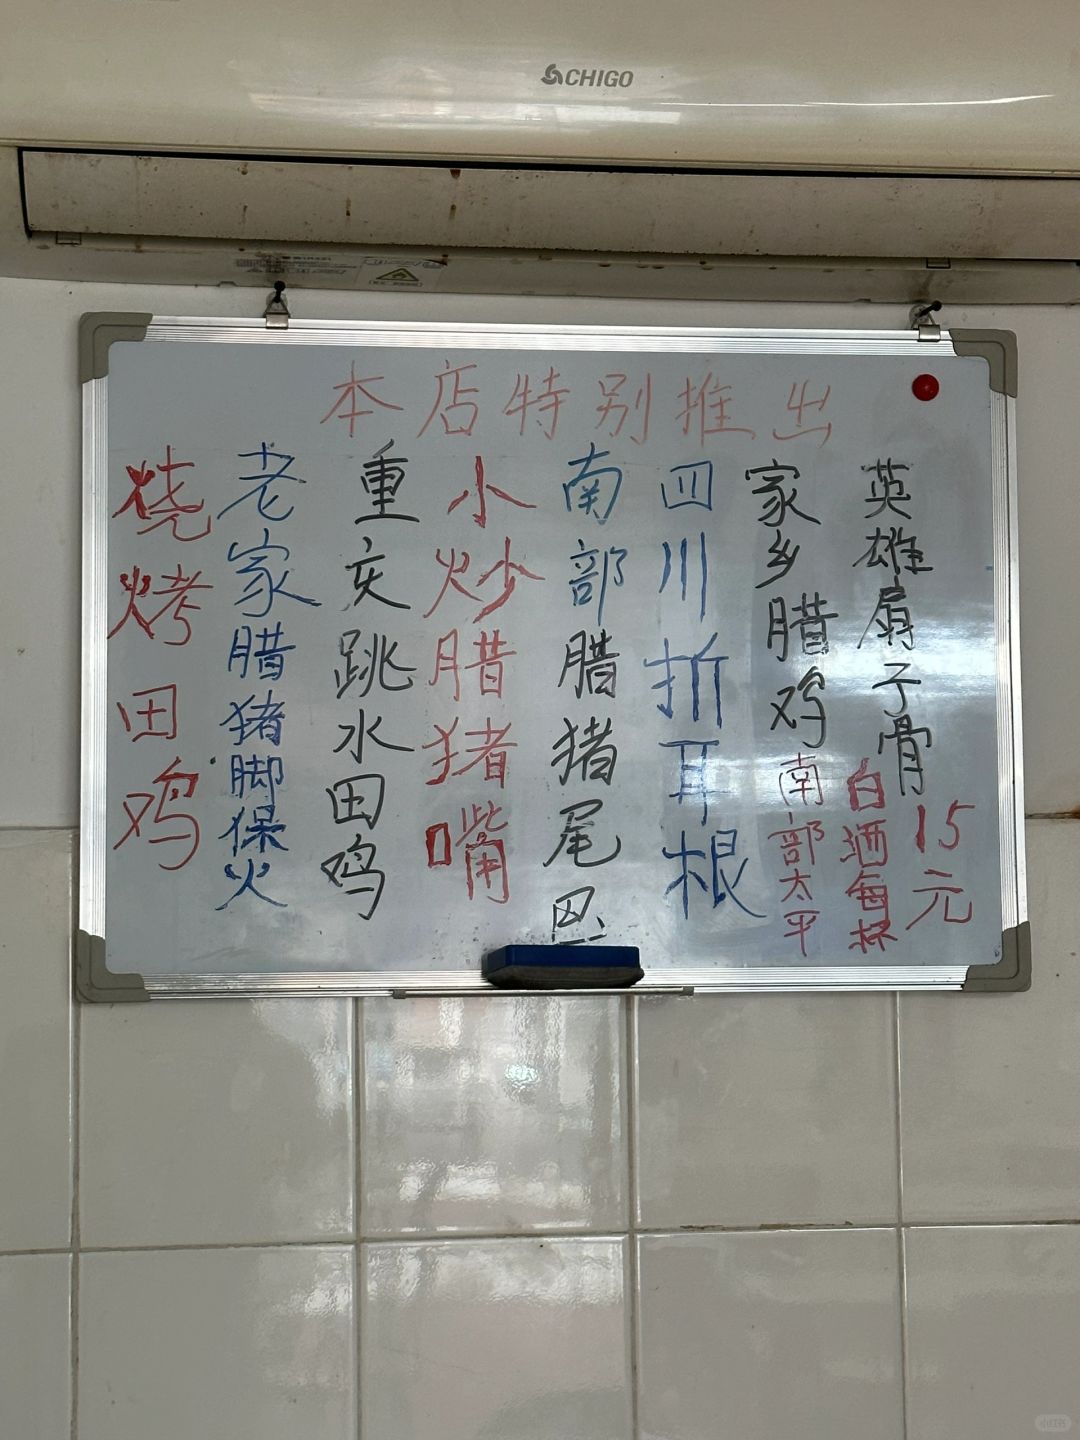 CHIGO
本店特别推出
烧烤田鸡
老家腊猪脚保火
重亥跳水田鸡
小炒腊猪嘴
南部腊猪尾巴
四川折耳根
家乡腊鸡
南部太平
英雄扇子骨
白洒每杯
15元
小红书